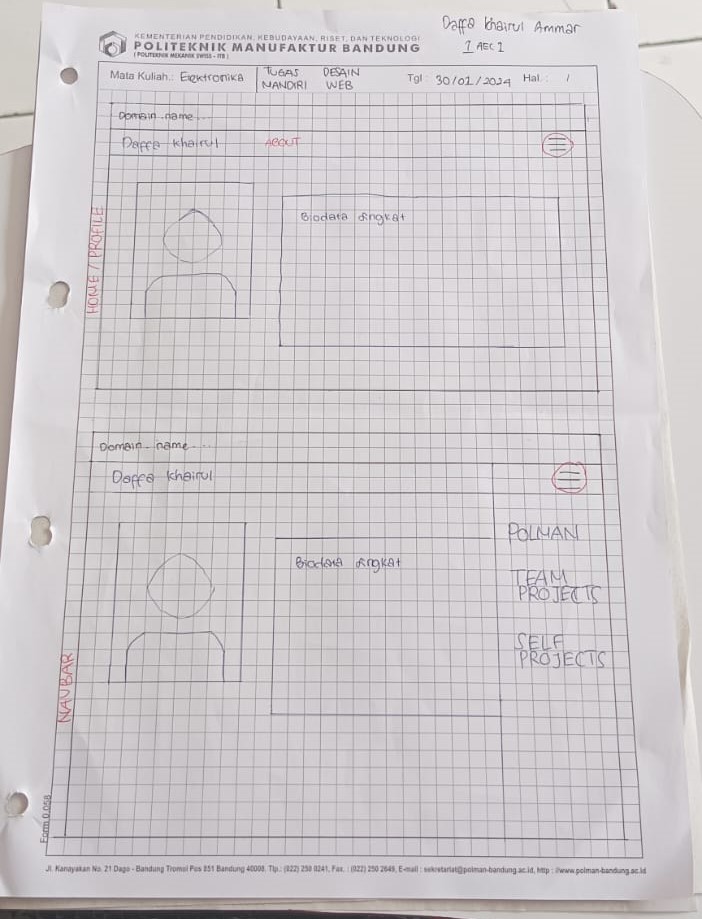 Daffa Khairul Ammar
1 AEC 1
KEMENTERIAN PENDIDIKAN, KEBUDAYAAN, RISET, DAN TEKNOLOGI
POLITEKNIK MANUFAKTUR BANDUNG
( POLITEKNIK MEKANIK SWISS - ITB )
Mata Kuliah : Elektronika
TUGAS DESAIN
MANDIRI WEB
Tgl : 30/01/2024 Hal : 1
Domain name ...
Daffa Khairul ABOUT
HOME / PROFILE
Biodata singkat
Domain name ...
Daffa Khairul
Biodata singkat
POLMAN
TEAM
PROJECTS
SELF
PROJECTS
NAVBAR
Form 0.058
Jl. Kanayakan No. 21 Dago - Bandung Tromol Pos 851 Bandung 40008. Tlp.: (022) 250 0241, Fax. : (022) 250 2649, E-mail : sekretariat@polman-bandung.ac.id, http : //www.polman-bandung.ac.id